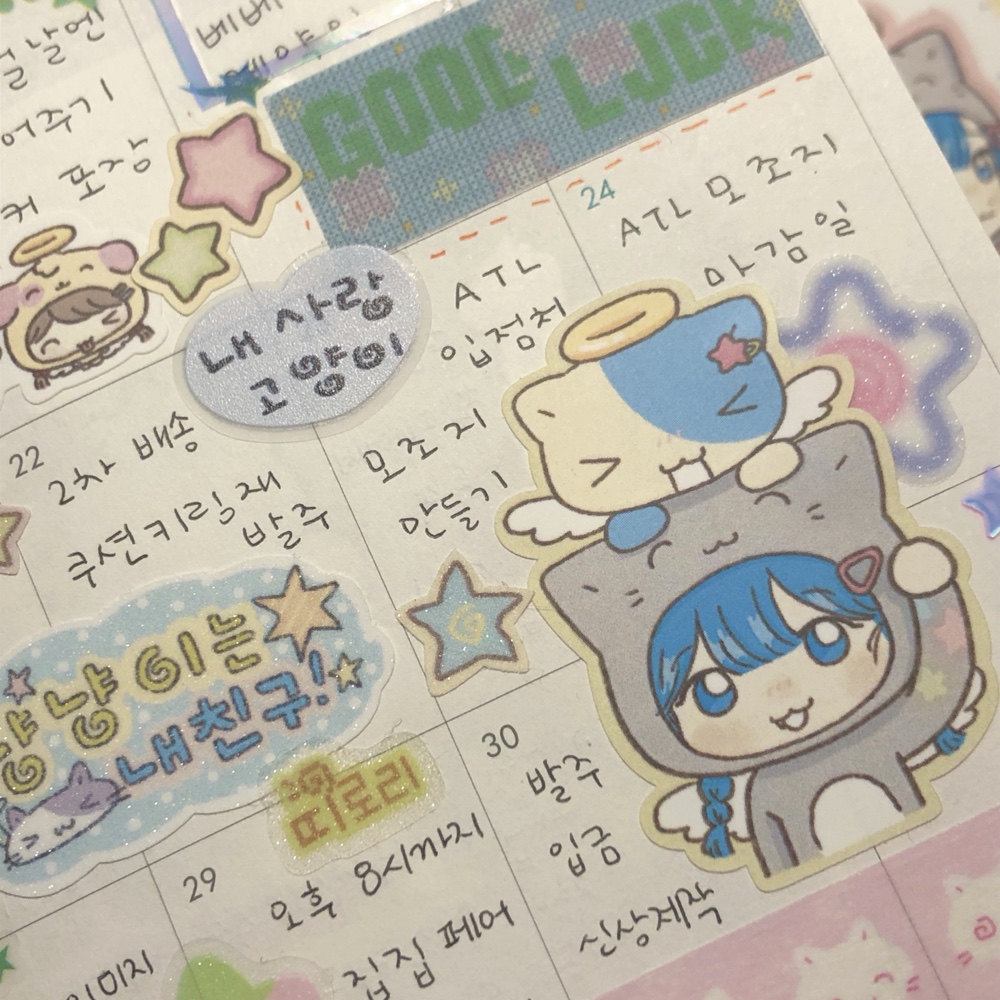 베베
GOOD LUCK
어주기
포장
내 사랑
고양이
ATL
입점처
모조지
만들기
24
ATL 모조지
마감일
22
2차 배송
쿠션키링재
발주
냥이는
내친구!
띠로리
29
오후 8시까지
집집 페어
30
발주
입금
신상제작